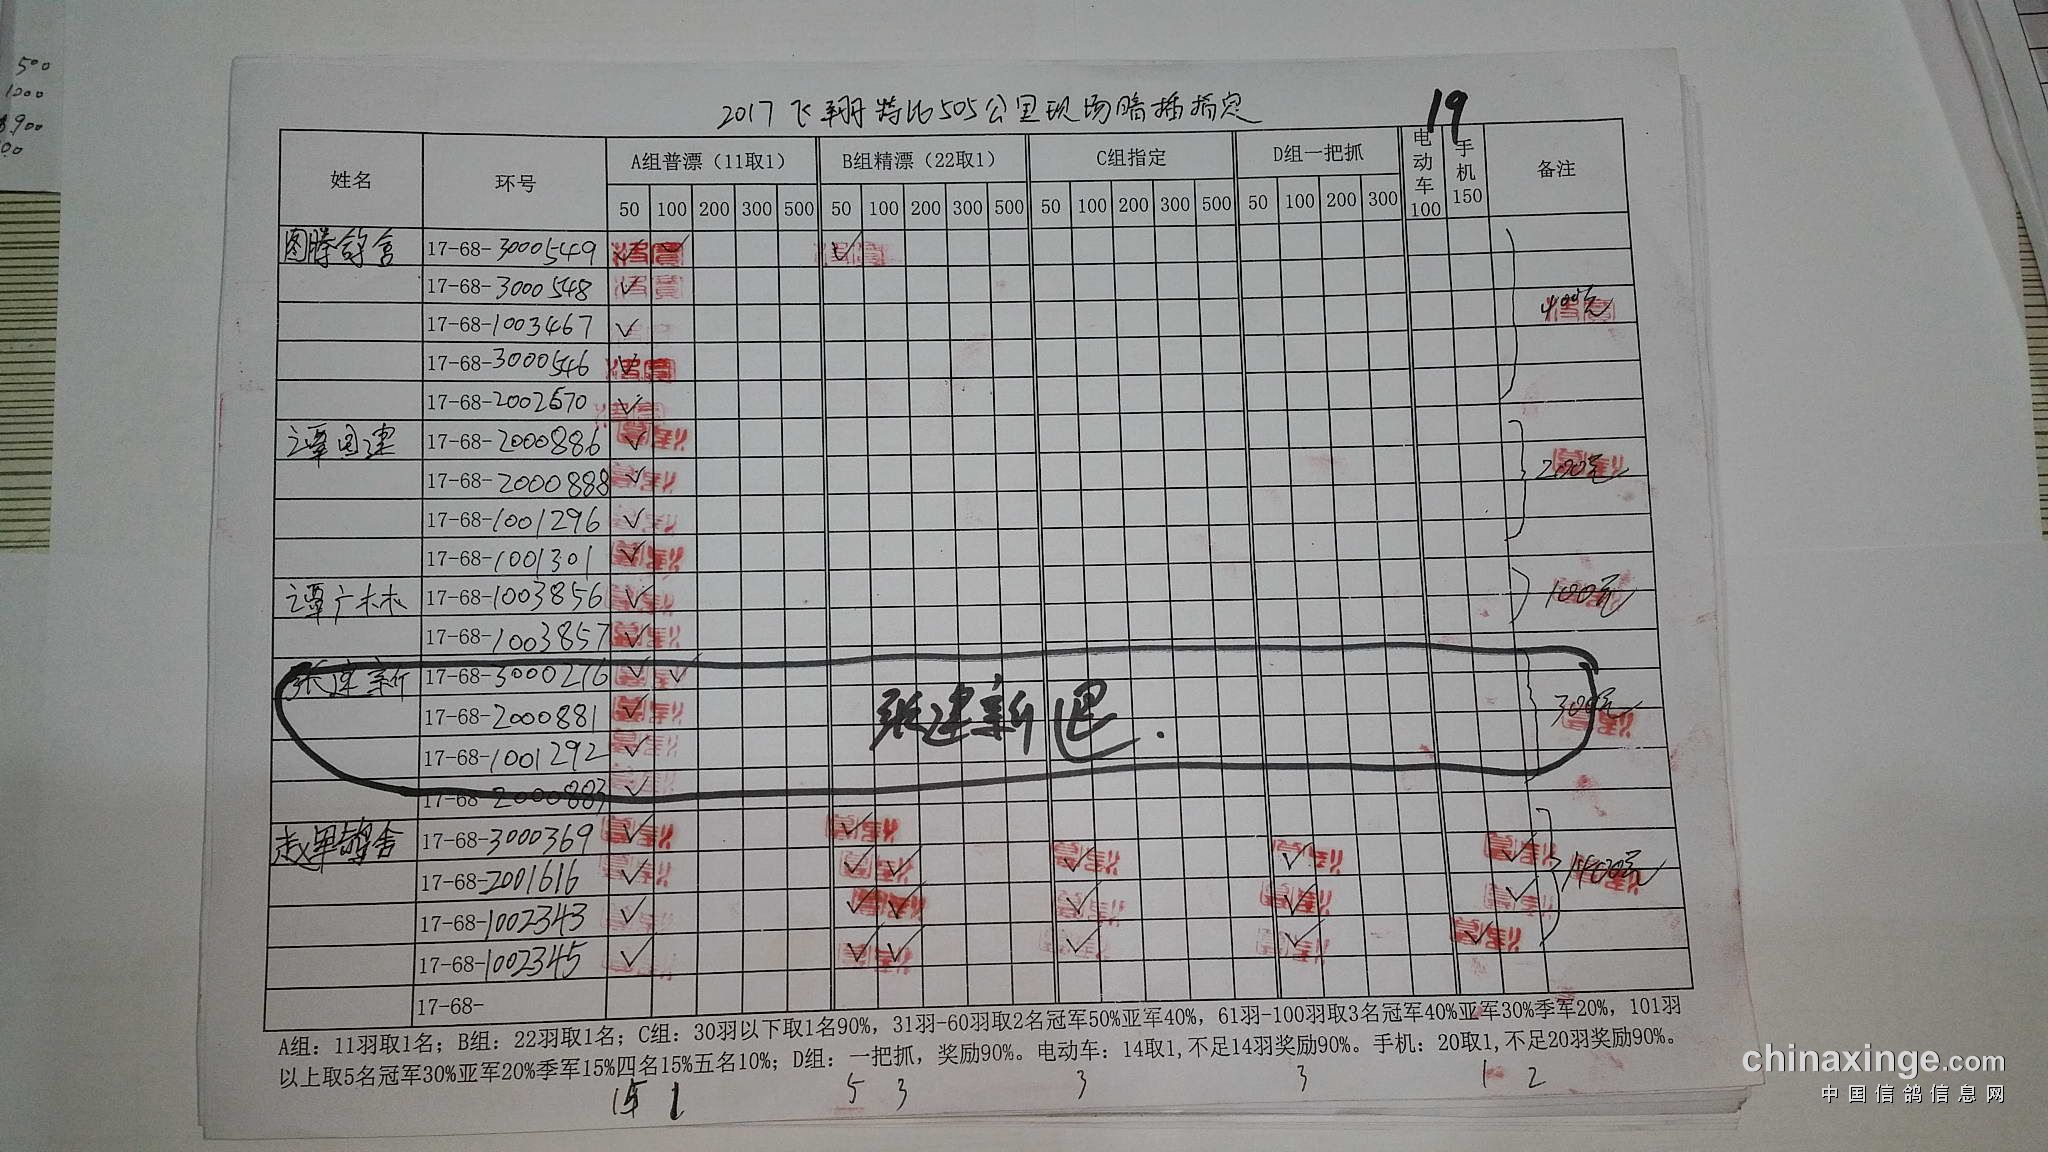 500
1200
900
00
2017飞翔特比505公里现场暗插指定
19
姓名 环号 A组普漂（11取1） B组精漂（22取1） C组指定 D组一把抓 电动车100 手机150 备注
50 100 200 300 500 50 100 200 300 500 50 100 200 300 500 50 100 200 300
图腾鸽舍 17-68-3000549 ✓ ✓ ✓
17-68-3000548 ✓
17-68-1003467 ✓ 400元
17-68-3000546 ✓
17-68-2002670 ✓
谭国建 17-68-2000886 ✓
17-68-2000888 ✓ 200元
17-68-1001296 ✓
17-68-1001301 ✓
谭广林 17-68-1003856 ✓ 100元
17-68-1003857 ✓
张建新 17-68-3000216 ✓ ✓
17-68-2000881 ✓ 张建新退. 300元
17-68-1001292 ✓
17-68-2000883 ✓
赵军鸽舍 17-68-3000369 ✓ ✓
17-68-2001616 ✓ ✓ ✓ ✓ ✓ ✓ 1400元
17-68-1002343 ✓ ✓ ✓ ✓ ✓ ✓
17-68-1002345 ✓ ✓ ✓ ✓ ✓ ✓
17-68-
A组：11羽取1名；B组：22羽取1名；C组：30羽以下取1名90%，31羽-60羽取2名冠军50%亚军40%，61羽-100羽取3名冠军40%亚军30%季军20%，101羽
以上取5名冠军30%亚军20%季军15%四名15%五名10%；D组：一把抓，奖励90%。电动车：14取1,不足14羽奖励90%。手机：20取1,不足20羽奖励90%。
15 1 5 3 3 3 1 2
chinaxinge.com
中国信鸽信息网